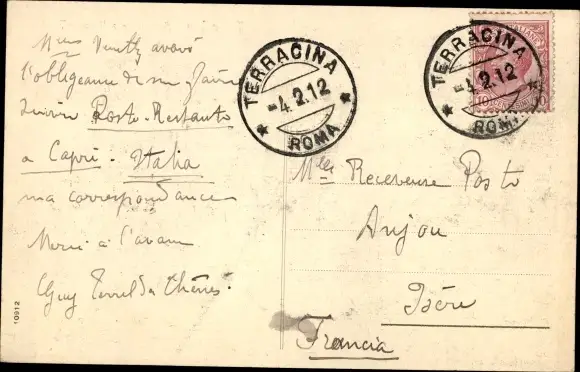 Mlle Veuillez avoir
l'obligeance de me faire
suivre Poste-Restante
a Capri - Italia
ma correspondance
Merci à l'avance
Guy
TERRACINA
-4.2.12
ROMA
TERRACINA
-4.2.12
ROMA
10
Mlle Receveuse Poste
Anjou
Isère
Francia
10912